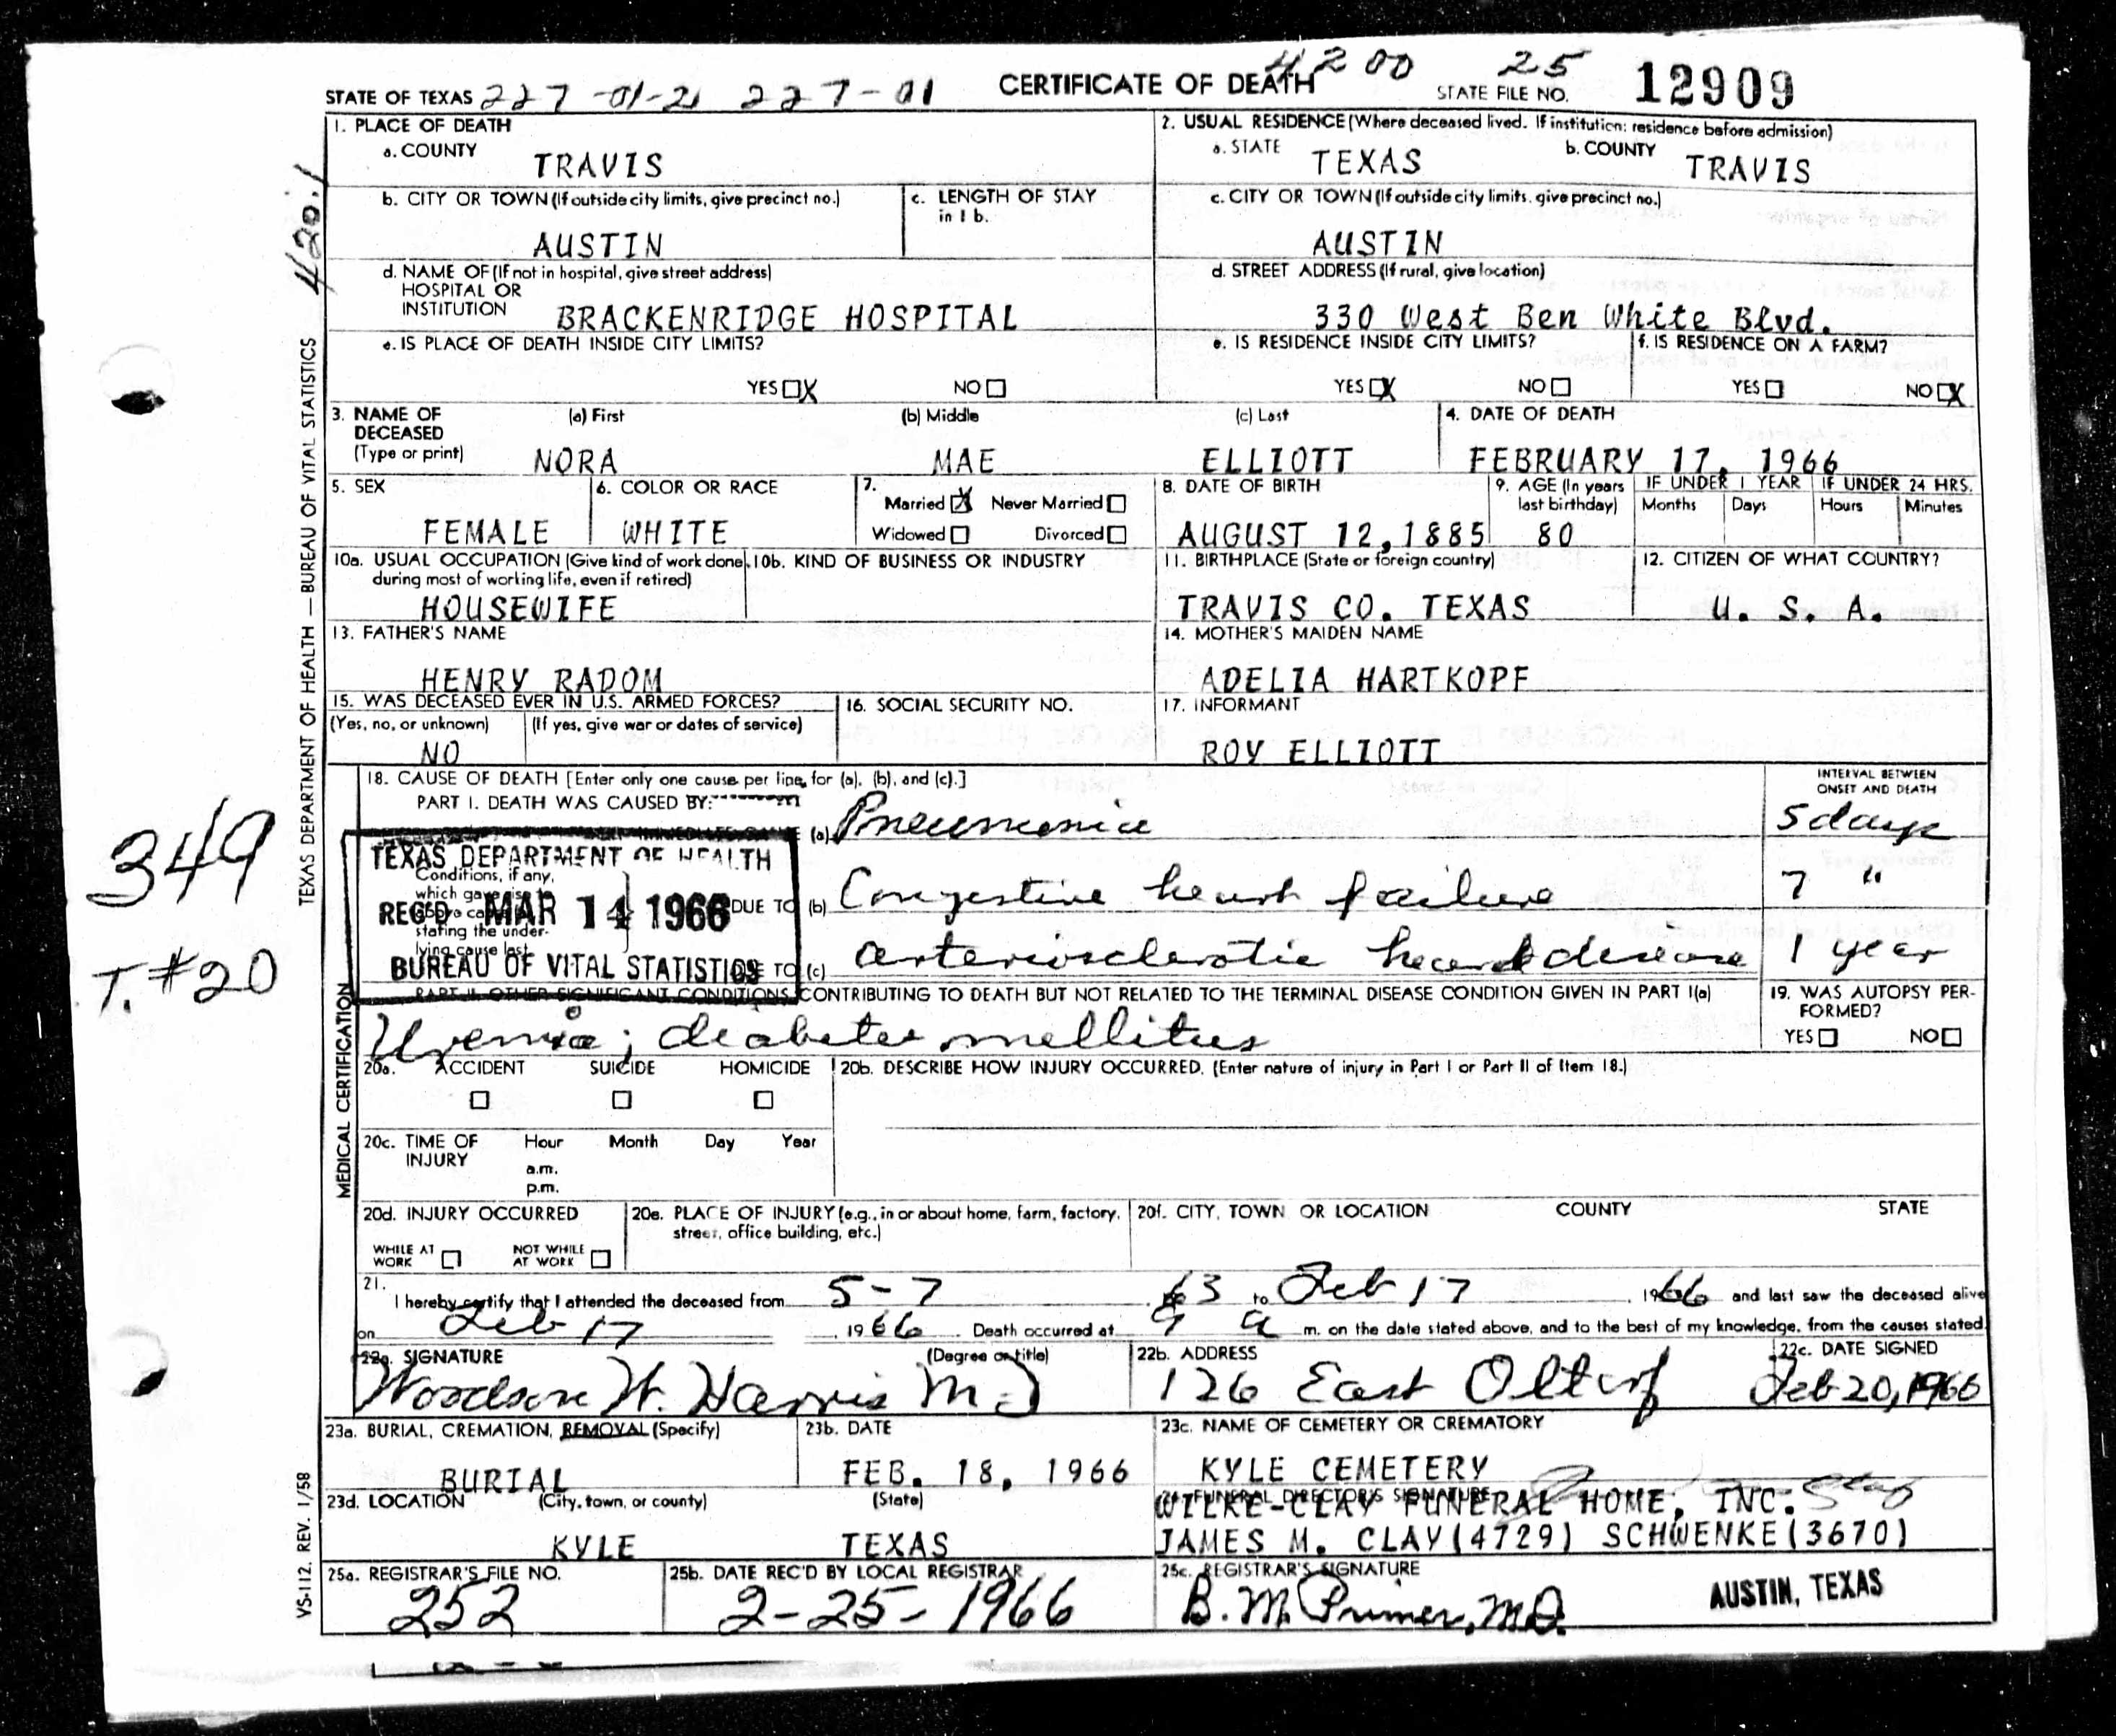 STATE OF TEXAS 227-01-21 227-01 CERTIFICATE OF DEATH 4200 25 STATE FILE NO. 12909
1. PLACE OF DEATH
a. COUNTY TRAVIS
2. USUAL RESIDENCE (Where deceased lived. If institution: residence before admission)
a. STATE TEXAS b. COUNTY TRAVIS
b. CITY OR TOWN (If outside city limits, give precinct no.) AUSTIN
c. LENGTH OF STAY in 1 b.
c. CITY OR TOWN (If outside city limits, give precinct no.) AUSTIN
d. NAME OF (If not in hospital, give street address)
HOSPITAL OR
INSTITUTION BRACKENRIDGE HOSPITAL
d. STREET ADDRESS (If rural, give location)
330 West Ben White Blvd.
e. IS PLACE OF DEATH INSIDE CITY LIMITS?
YES X NO
e. IS RESIDENCE INSIDE CITY LIMITS?
YES X NO
f. IS RESIDENCE ON A FARM?
YES NO X
3. NAME OF DECEASED (Type or print)
(a) First NORA
(b) Middle MAE
(c) Last ELLIOTT
4. DATE OF DEATH
FEBRUARY 17, 1966
5. SEX FEMALE
6. COLOR OR RACE WHITE
7. Married X Never Married
Widowed Divorced
8. DATE OF BIRTH AUGUST 12,1885
9. AGE (In years last birthday) 80
IF UNDER 1 YEAR Months Days
IF UNDER 24 HRS. Hours Minutes
10a. USUAL OCCUPATION (Give kind of work done during most of working life, even if retired)
HOUSEWIFE
10b. KIND OF BUSINESS OR INDUSTRY
11. BIRTHPLACE (State or foreign country)
TRAVIS CO. TEXAS
12. CITIZEN OF WHAT COUNTRY?
U. S. A.
13. FATHER'S NAME
HENRY RADOM
14. MOTHER'S MAIDEN NAME
ADELIA HARTKOPF
15. WAS DECEASED EVER IN U.S. ARMED FORCES?
(Yes, no, or unknown) NO
(If yes, give war or dates of service)
16. SOCIAL SECURITY NO.
17. INFORMANT
ROY ELLIOTT
18. CAUSE OF DEATH [Enter only one cause per line for (a), (b), and (c).]
PART I. DEATH WAS CAUSED BY:
INTERVAL BETWEEN ONSET AND DEATH
(a) Pneumonia 5 days
Conditions, if any, which gave rise to above cause stating the underlying cause last.
DUE TO (b) Congestive heart failure 7 "
DUE TO (c) arteriosclerotic heart disease 1 year
TEXAS DEPARTMENT OF HEALTH
REC'D MAR 14 1966
BUREAU OF VITAL STATISTICS
PART II. OTHER SIGNIFICANT CONDITIONS CONTRIBUTING TO DEATH BUT NOT RELATED TO THE TERMINAL DISEASE CONDITION GIVEN IN PART I(a)
Uremia; diabetes mellitus
19. WAS AUTOPSY PERFORMED?
YES NO
20a. ACCIDENT SUICIDE HOMICIDE
20b. DESCRIBE HOW INJURY OCCURRED. (Enter nature of injury in Part I or Part II of Item 18.)
20c. TIME OF INJURY Hour Month Day Year
a.m.
p.m.
20d. INJURY OCCURRED
WHILE AT WORK NOT WHILE AT WORK
20e. PLACE OF INJURY (e.g., in or about home, farm, factory, street, office building, etc.)
20f. CITY, TOWN OR LOCATION COUNTY STATE
21. I hereby certify that I attended the deceased from 5-7 63 to Feb 17, 1966 and last saw the deceased alive
on Feb 17, 1966. Death occurred at 9 a m. on the date stated above, and to the best of my knowledge, from the causes stated.
22a. SIGNATURE (Degree or title)
Woodson W. Harris M.D
22b. ADDRESS
126 East Oltorf
22c. DATE SIGNED
Feb 20, 1966
23a. BURIAL, CREMATION, REMOVAL (Specify)
BURIAL
23b. DATE
FEB. 18, 1966
23c. NAME OF CEMETERY OR CREMATORY
KYLE CEMETERY
23d. LOCATION (City, town, or county) (State)
KYLE TEXAS
24. FUNERAL DIRECTOR'S SIGNATURE
WILKE-CLAY FUNERAL HOME, INC.
JAMES M. CLAY(4729) SCHWENKE(3670)
25a. REGISTRAR'S FILE NO.
252
25b. DATE REC'D BY LOCAL REGISTRAR
2-25-1966
25c. REGISTRAR'S SIGNATURE
B. M. Primer, M.D.
AUSTIN, TEXAS
420.1
TEXAS DEPARTMENT OF HEALTH — BUREAU OF VITAL STATISTICS
349
T.#20
MEDICAL CERTIFICATION
VS-112. REV. 1/58